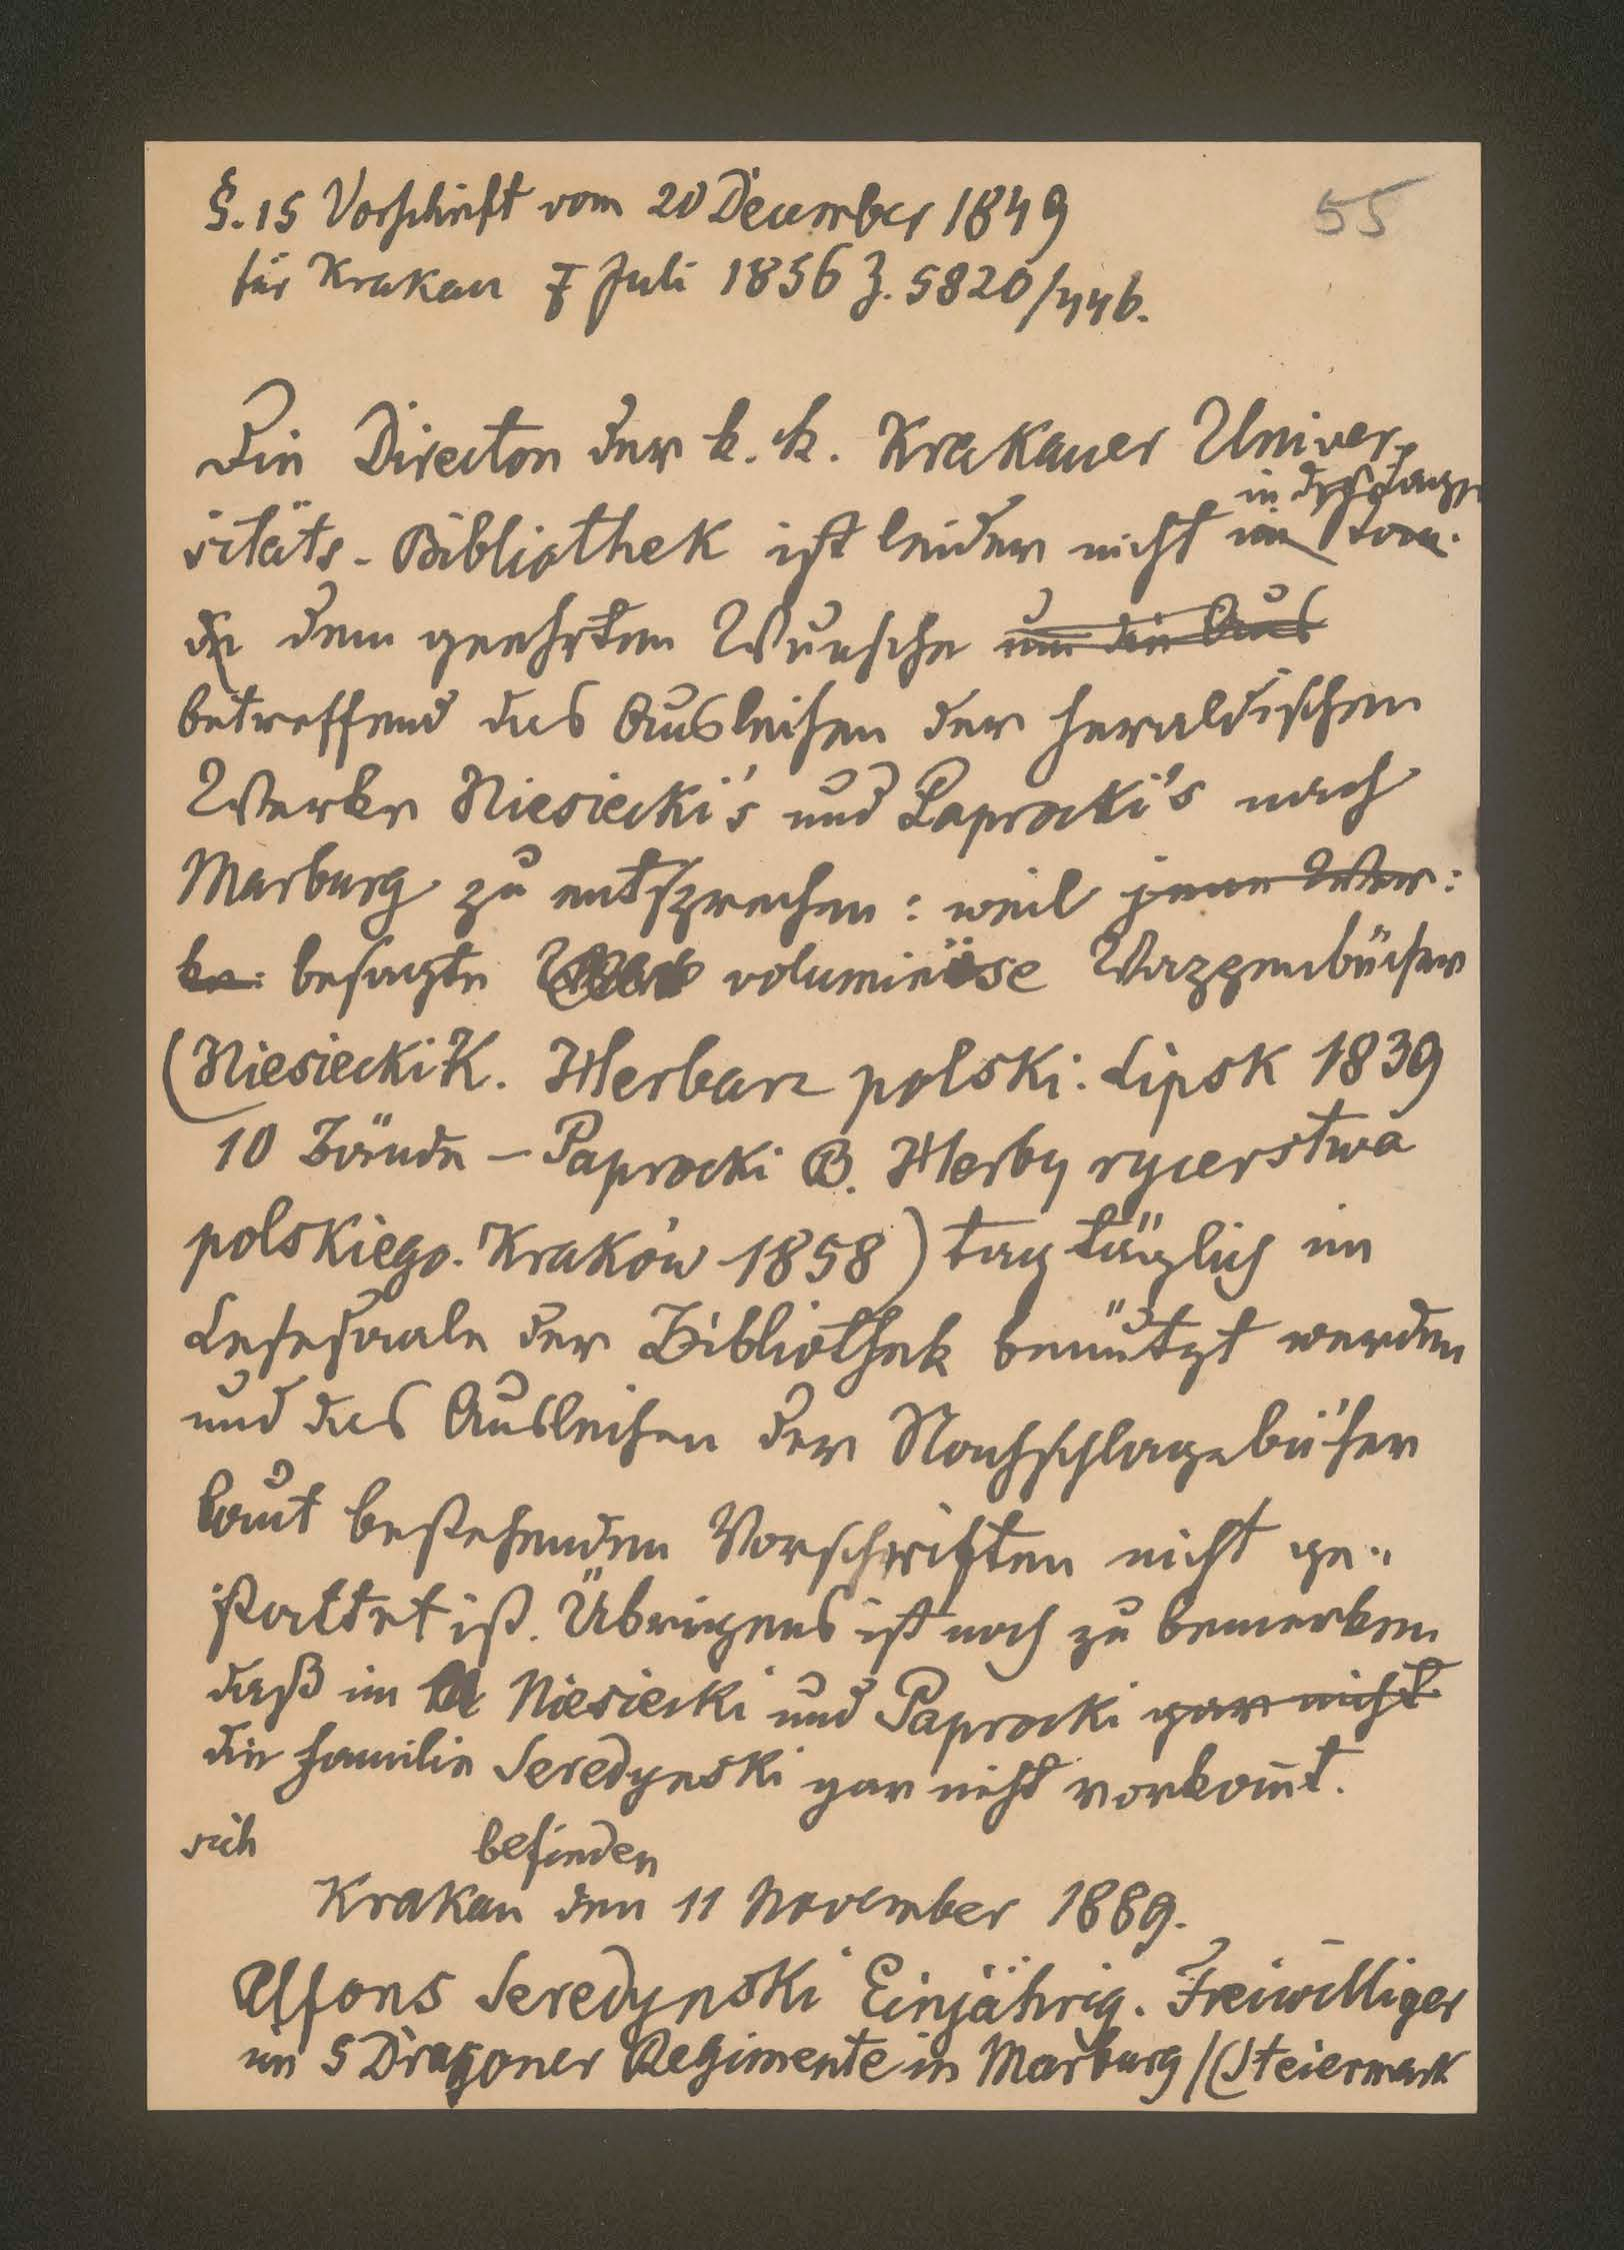 §. 15 Vorschrift vom 20 December 1849
55
für Krakau 7 Juli 1856 Z. 5820/446.
Die Direction der k. k. Krakauer Univer-
in der Lage
sitäts-Bibliothek ist leider nicht im Stan-
de dem geehrten Wunsche um die Aus
betreffend das Ausleihen der heraldischen
Werke Niesiecki's und Paprocki's nach
Marburg zu entsprechen: weil jene Wer:
ke: besagte voluminöse Wappenbücher
(Niesiecki K. Herbarz polski. Lipsk 1839
10 Bände – Paprocki B. Herby rycerstwa
polskiego. Kraków 1858) tag täglich im
Lesesaale der Bibliothek benützt werden
und das Ausleihen der Nachschlagebücher
laut bestehenden Vorschriften nicht ge-
stattet ist. Übrigens ist noch zu bemerken
daß im Niesiecki und Paprocki gar nicht
die Familie Seredynski gar nicht vorkom̄t.
sich befinden
Krakau den 11 November 1889.
Alfons Seredynski Einjährig. Freiwilliger
im 5 Dragoner Regimente in Marburg /(Steiermark